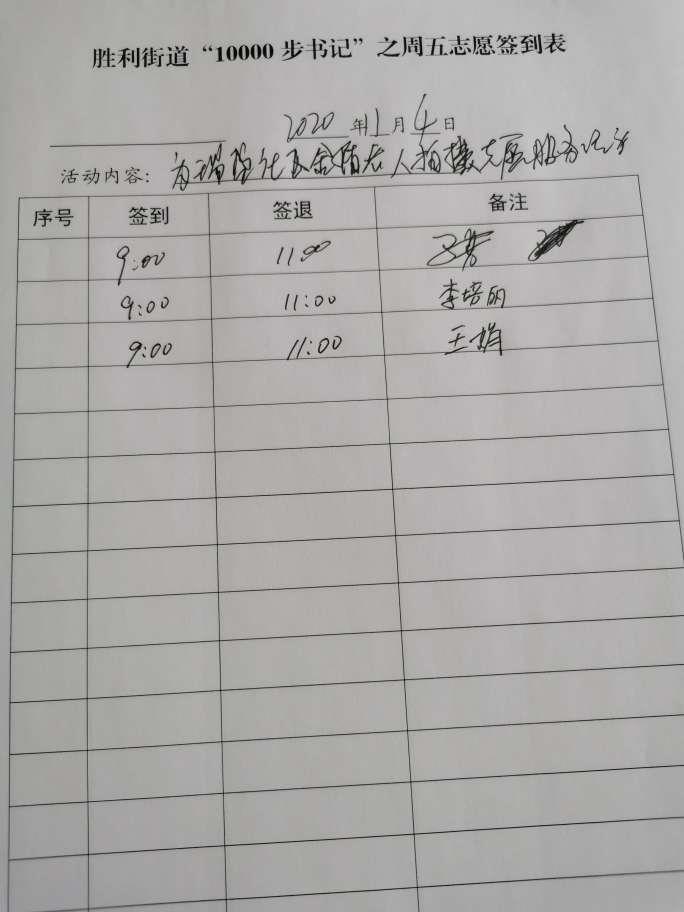 胜利街道“10000 步书记”之周五志愿签到表
2020 年 11 月 4 日
活动内容： 为瑞 社区金婚老人拍摄志愿服务活动
序号 签到 签退 备注
9:00 11:00
9:00 11:00 李培丽
9:00 11:00 王娟